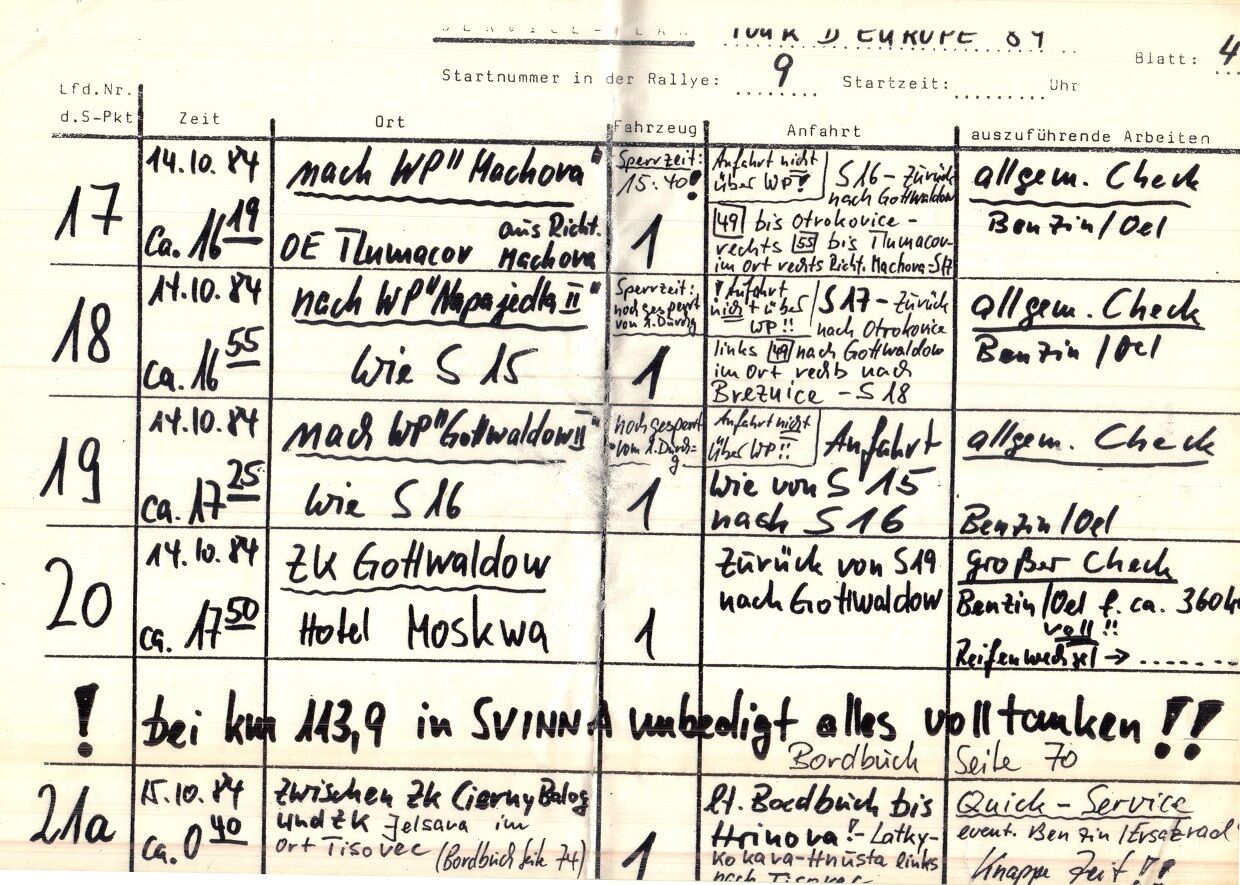 SERVICE-PLAN TOUR D'EUROPE 84
Blatt: 4
Startnummer in der Rallye: 9 Startzeit:........Uhr
Lfd.Nr.
d.S-Pkt Zeit Ort Fahrzeug Anfahrt auszuführende Arbeiten
17
14.10.84
ca. 16 19
nach WP "Machova"
aus Richt.
OE Tlumacov Machova
Sperrzeit:
15.40!
1
Anfahrt nicht
über WP!
S16 - Zurück
nach Gottwaldow
49 bis Otrokovice -
rechts 55 bis Tlumacov
im Ort rechts Richt. Machova-S17
allgem. Check
Benzin/Oel
18
14.10.84
ca. 16 55
nach WP "Napajedla II"
wie S 15
Sperrzeit:
noch gesperrt
von 1. Durchg
1
! Anfahrt
nicht über
WP!!
S17 - Zurück
nach Otrokovice
links 49 nach Gottwaldow
im Ort rechts nach
Breznice - S18
allgem. Check
Benzin/Oel
19
14.10.84
ca. 17 25
nach WP "Gottwaldow II"
wie S 16
noch gesperrt
vom 1. Durch-
g
1
Anfahrt nicht
über WP!!
Anfahrt
wie von S 15
nach S 16
allgem. Check
Benzin/Oel
20
14.10.84
ca. 17 50
ZK Gottwaldow
Hotel Moskwa
1
Zurück von S19
nach Gottwaldow
großer Check
Benzin/Oel f. ca. 360
voll!!
Reifenwechsel → ......
! bei km 113,9 in SVINNA unbedigt alles volltanken!!
Bordbuch Seite 70
21a
15.10.84
ca. 0 40
Zwischen ZK Cierny Balog
und ZK Jelsava im
Ort Tisovec (Bordbuch Seite 74)
1
lt. Bordbuch bis
Hrinova! - Lathy-
Kokava-Hnusta links
nach Tisovec
Quick-Service
event. Benzin/Ersatzrad
Knappe Zeit!!